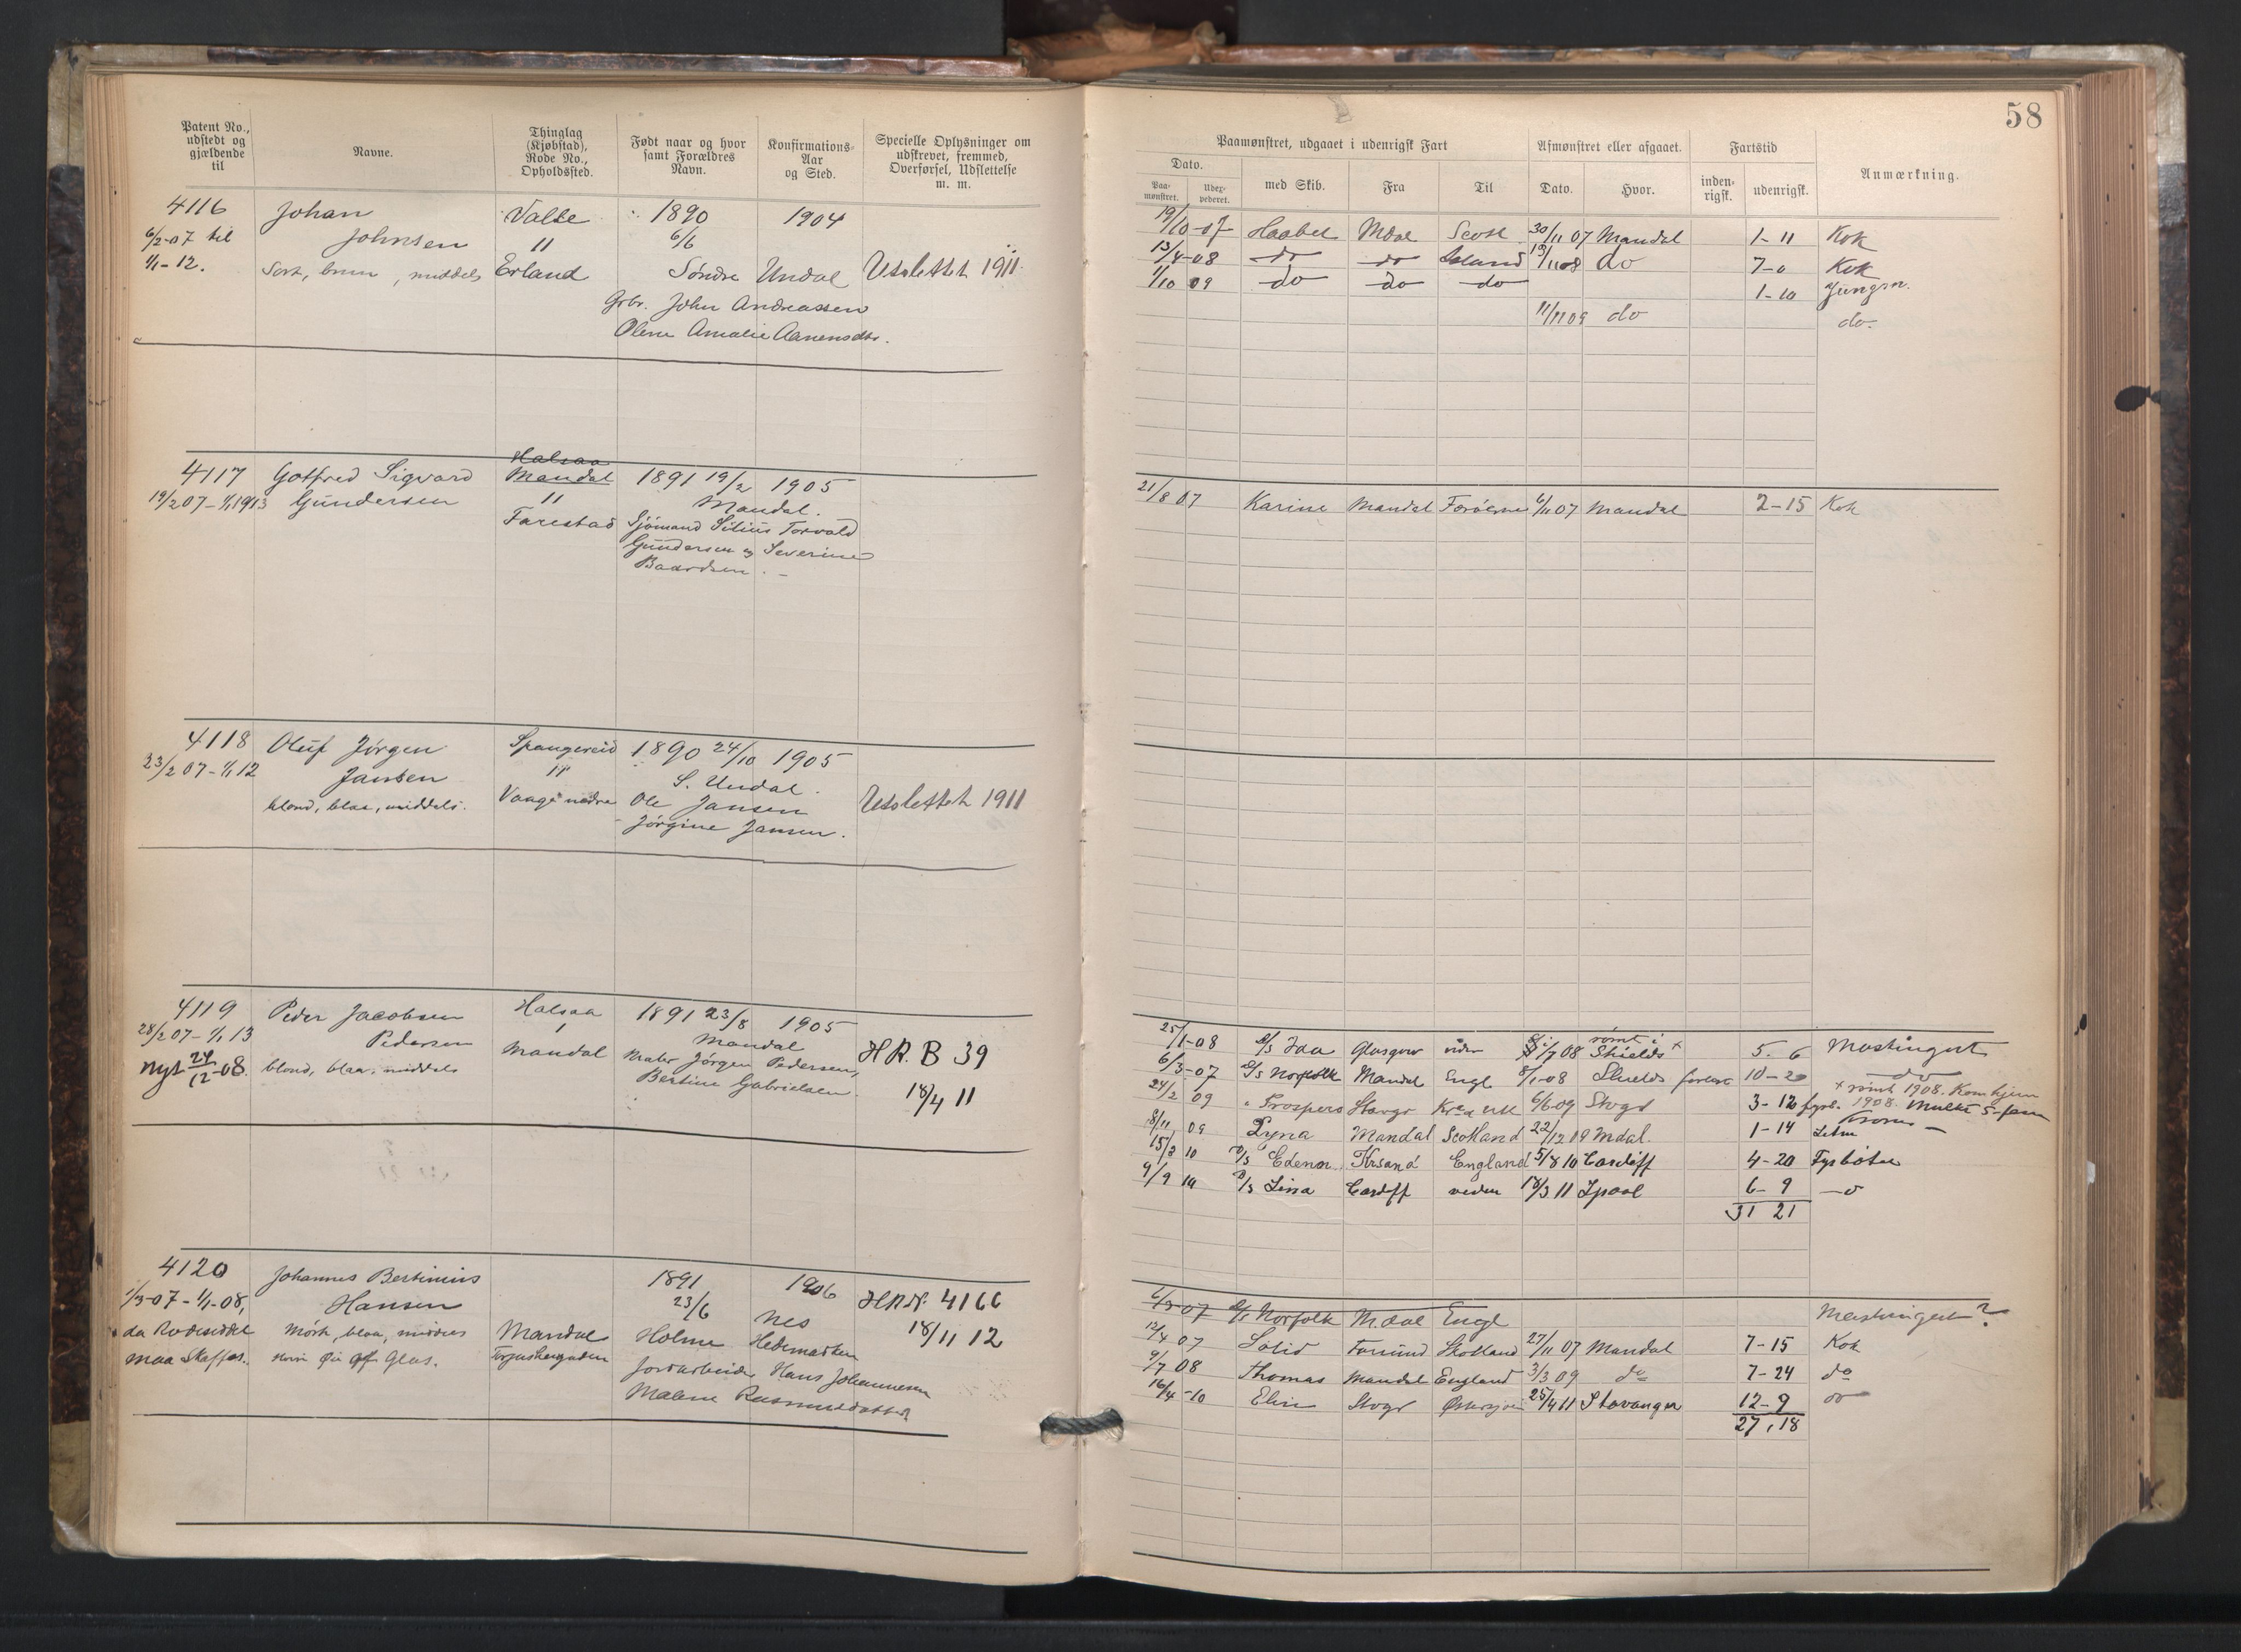 58
Patent No., udstedt og gjældende til
Navne.
Thinglag (Kjøbstad), Rode No., Opholdssted.
Født naar og hvor samt Forældres Navn.
Konfirmations-Aar og Sted.
Specielle Oplysninger om udskrevet, fremmed, Overførsel, Udslettelse m. m.
Paamønstret, udgaaet i udenrigsk Fart
Afmønstret eller afgaaet.
Fartstid
Anmærkning.
Dato.
med Skib.
Fra
Til
Dato.
Hvor.
inden-rigsk.
udenrigsk.
Paa-mønstret.
Udex-pederet.
4116 Johan Valle 1890 1904
6/2-07 til Johnsen II 6/6
1/1-12. Sort, brun, middels Erland Søndre Undal Udslettet 1911.
Gbr. John Andreassen
Olene Amalie Aanensdtr.
19/10-07 Haabet Mdal Scotl 30/11 07 Mandal 1-11 Kok
13/4-08 do do Island 13/11 08 do 7-0 Kok
1/10 09 do do do 1-10 Jungm.
11/11 09 do do.
Halsaa
4117 Gotfred Sigvard Mandal 1891 19/2 1905
19/2 07-1/1 1913 Gundersen II Mandal.
Farestad Sjømand Silius Torvald
Gundersen og Severine
Baardsen.
21/8 07 Karine Mandal Førøerne 6/11 07 Mandal 2-15 Kok
4118 Oluf Jørgen Spangereid 1890 24/10 1905
23/2 07-1/1 12 Jansen II S. Undal.
blond, blaa, middels. Vaage nedre Ole Jansen Udslettet 1911
Jørgine Jansen.
4119 Peder Jacobsen Halsaa 1891 23/8 1905
28/2 07-1/1 13 Pedersen 1 Mandal
Nyt 24/12-08. blond, blaa, middels Mandal Maler Jørgen Pedersen, HR. B 39
Bertine Gabrielsen. 18/4 11
25/1-08 D/S Ida Glasgow viden 1/7 08 rømt i Shields x 5. 6 Mestingut
6/3-07 D/S Norfolk Mandal Engl 8/1-08 Shields 10-20 do
x rømt 1908. Kom hjem
24/2 09 " Prospero Stavgr 6/6-09 Stvgr 3-12 fyrb. 1908. Mulkt 5-fem
Kroner
8/11 09 Lyna Mandal Scotland 22/12 09 Mdal. 1-14
15/3 10 D/S Edena Krsand England 5/8 10 Cardiff 4-20 Fyrbøter
9/9 10 D/S Lina Cardiff viden 18/3 11 Lpool 6-9 do
31 21
4120 Johannes Bertinius 1891 1906 HR.N. 4166
1/3-07-1/1-08, Hansen 23/6 Nes 18/11 12
da Rodeseddel Mørk, blaa, middels Mandal Holme Hedemarken
maa Skaffes. Glas. Jordarbeider Hans Johannesen
Malene Rasmusdatter
6/3-07 D/S Norfolk M.dal Engl Mestingut?
12/4 07 Solid Farsund Skotland 27/11 07 Mandal 7-15 Kok
9/7 08 Thomas Mandal England 3/3 09 do 7-24 do
16/4-10 Elin Stvgr Østersjøen 25/4 11 Stavanger 12-9 do
27, 18